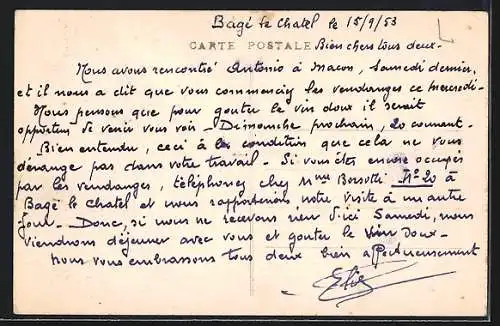 Bagé le Chatel le 15/9/53
CARTE POSTALE
Bien chers tous deux-
Nous avons rencontré Antonio à Macon, Samedi dernier,
et il nous a dit que vous commenciez les vendanges ce mercredi-
Nous pensons que pour gouter le vin doux il serait
opportun de venir vous voir - Dimanche prochain, 20 courant.
Bien entendu, ceci à la condition que cela ne vous
dérange pas dans votre travail - Si vous êtes encore occupés
par les vendanges, téléphonez chez Mme Borsotti N° 20 à
Bagé le Chatel et nous rapporterions notre visite à un autre
jour. - Donc, si nous ne recevons rien d'ici Samedi, nous
viendrons déjeuner avec vous et gouter le vin doux-
Nous vous embrassons tous deux bien affectueusement